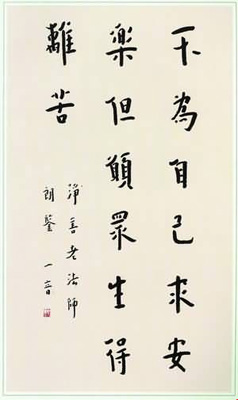 不為自己求安
楽但願眾生得
離苦
淨善老法師
朗鑒 一音